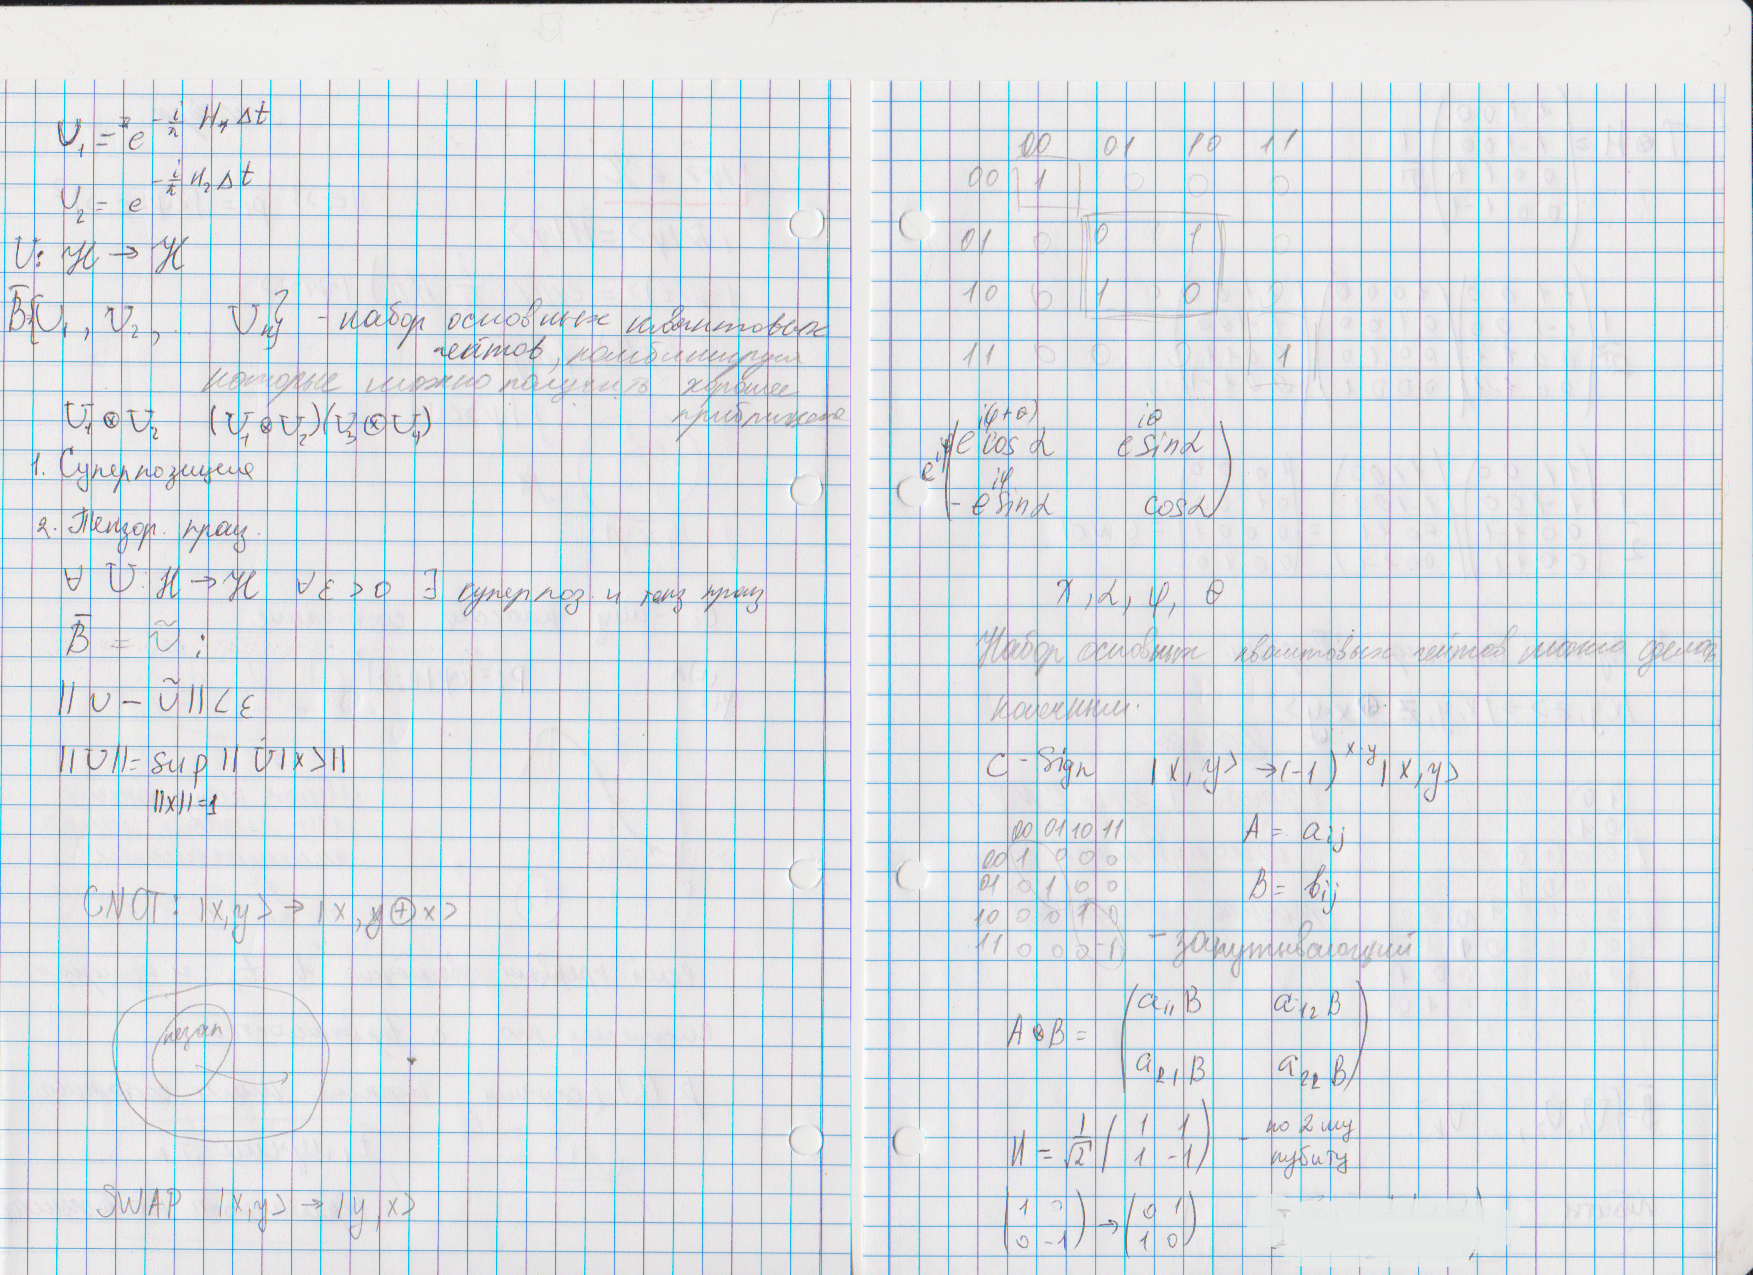 U₁ = e^{-i/ħ H₁Δt}
U₂ = e^{-i/ħ H₂Δt}
U: ℋ → ℋ
B̅{U₁, U₂, U_n} - набор основных квантовых
гейтов, комбинируя
которые можно получить хорошее
приближение
U₁⊗U₂ (U₁⊗U₂)(U₃⊗U₄)
1. Суперпозиция
2. Тензор. произ.
∀ U: ℋ → ℋ ∀ε > 0 ∃ суперпоз. и тенз произ
B̅ = Ũ :
||U - Ũ|| < ε
||U|| = sup ||U|x>||
||x||=1
CNOT: |x,y> → |x, y⊕x>
незап
SWAP |x,y> → |y,x>
00 01 10 11
00 1 0 0 0
01 0 0 1 0
10 0 1 0 0
11 0 0 0 1
e^{i(φ+θ)} cos α e^{iθ} sin α
- e^{iφ} sin α cos α
α, φ, θ
Набор основных квантовых гейтов можно сделать
конечным.
C - Sign |x,y> → (-1)^{x·y} |x,y>
00 01 10 11
00 1 0 0 0
01 0 1 0 0
10 0 0 1 0
11 0 0 0 -1 - запутывающий
A = a_ij
B = b_ij
A⊗B = (a₁₁B a₁₂B
a₂₁B a₂₂B)
H = 1/√2 (1 1
1 -1) - по 2 му
кубиту
(1 0
0 -1) → (0 1
1 0)